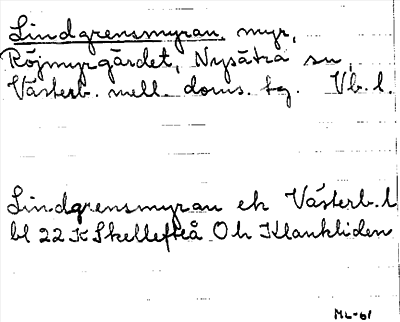 Lindgrensmyran, myr,
Röjmyrgärdet, Nysätra sn,
Västerb. mell. doms. tg. Vb. l.
Lindgrensmyran ek Västerb. l
bl 22 K Skellefteå Oh Klankliden
ML-61